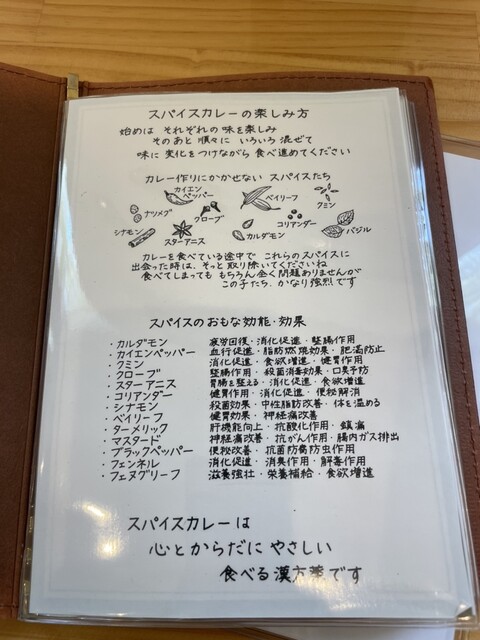 スパイスカレーの楽しみ方
始めは それぞれの 味を楽しみ
そのあと 順々に いろいろ 混ぜて
味に 変化をつけながら 食べ進めてください
カレー作りにかかせない スパイスたち
カイエンペッパー
ベイリーフ
クミン
ナツメグ
クローブ
コリアンダー
バジル
シナモン
スターアニス
カルダモン
カレーを食べている途中で これらのスパイスに
出会った時は、そっと 取り除いてくださいね
食べてしまっても もちろん全く問題ありませんが
この子たち、かなり強烈です
スパイスのおもな効能・効果
・カルダモン 疲労回復・消化促進・整腸作用
・カイエンペッパー 血行促進・脂肪燃焼効果・肥満防止
・クミン 消化促進・食欲増進・健胃作用
・クローブ 整腸作用・殺菌消毒効果・口臭予防
・スターアニス 胃腸を整える・消化促進・食欲増進
・コリアンダー 健胃作用・消化促進・便秘解消
・シナモン 殺菌効果・中性脂肪改善・体を温める
・ベイリーフ 健胃効果・神経痛改善
・ターメリック 肝機能向上・抗酸化作用・鎮痛
・マスタード 神経痛改善・抗がん作用・腸内ガス排出
・ブラックペッパー 便秘改善・抗菌防腐防虫作用
・フェンネル 消化促進・消臭作用・解毒作用
・フェヌグリーフ 滋養強壮・栄養補給・食欲増進
スパイスカレーは
心とからだに やさしい
食べる漢方薬です